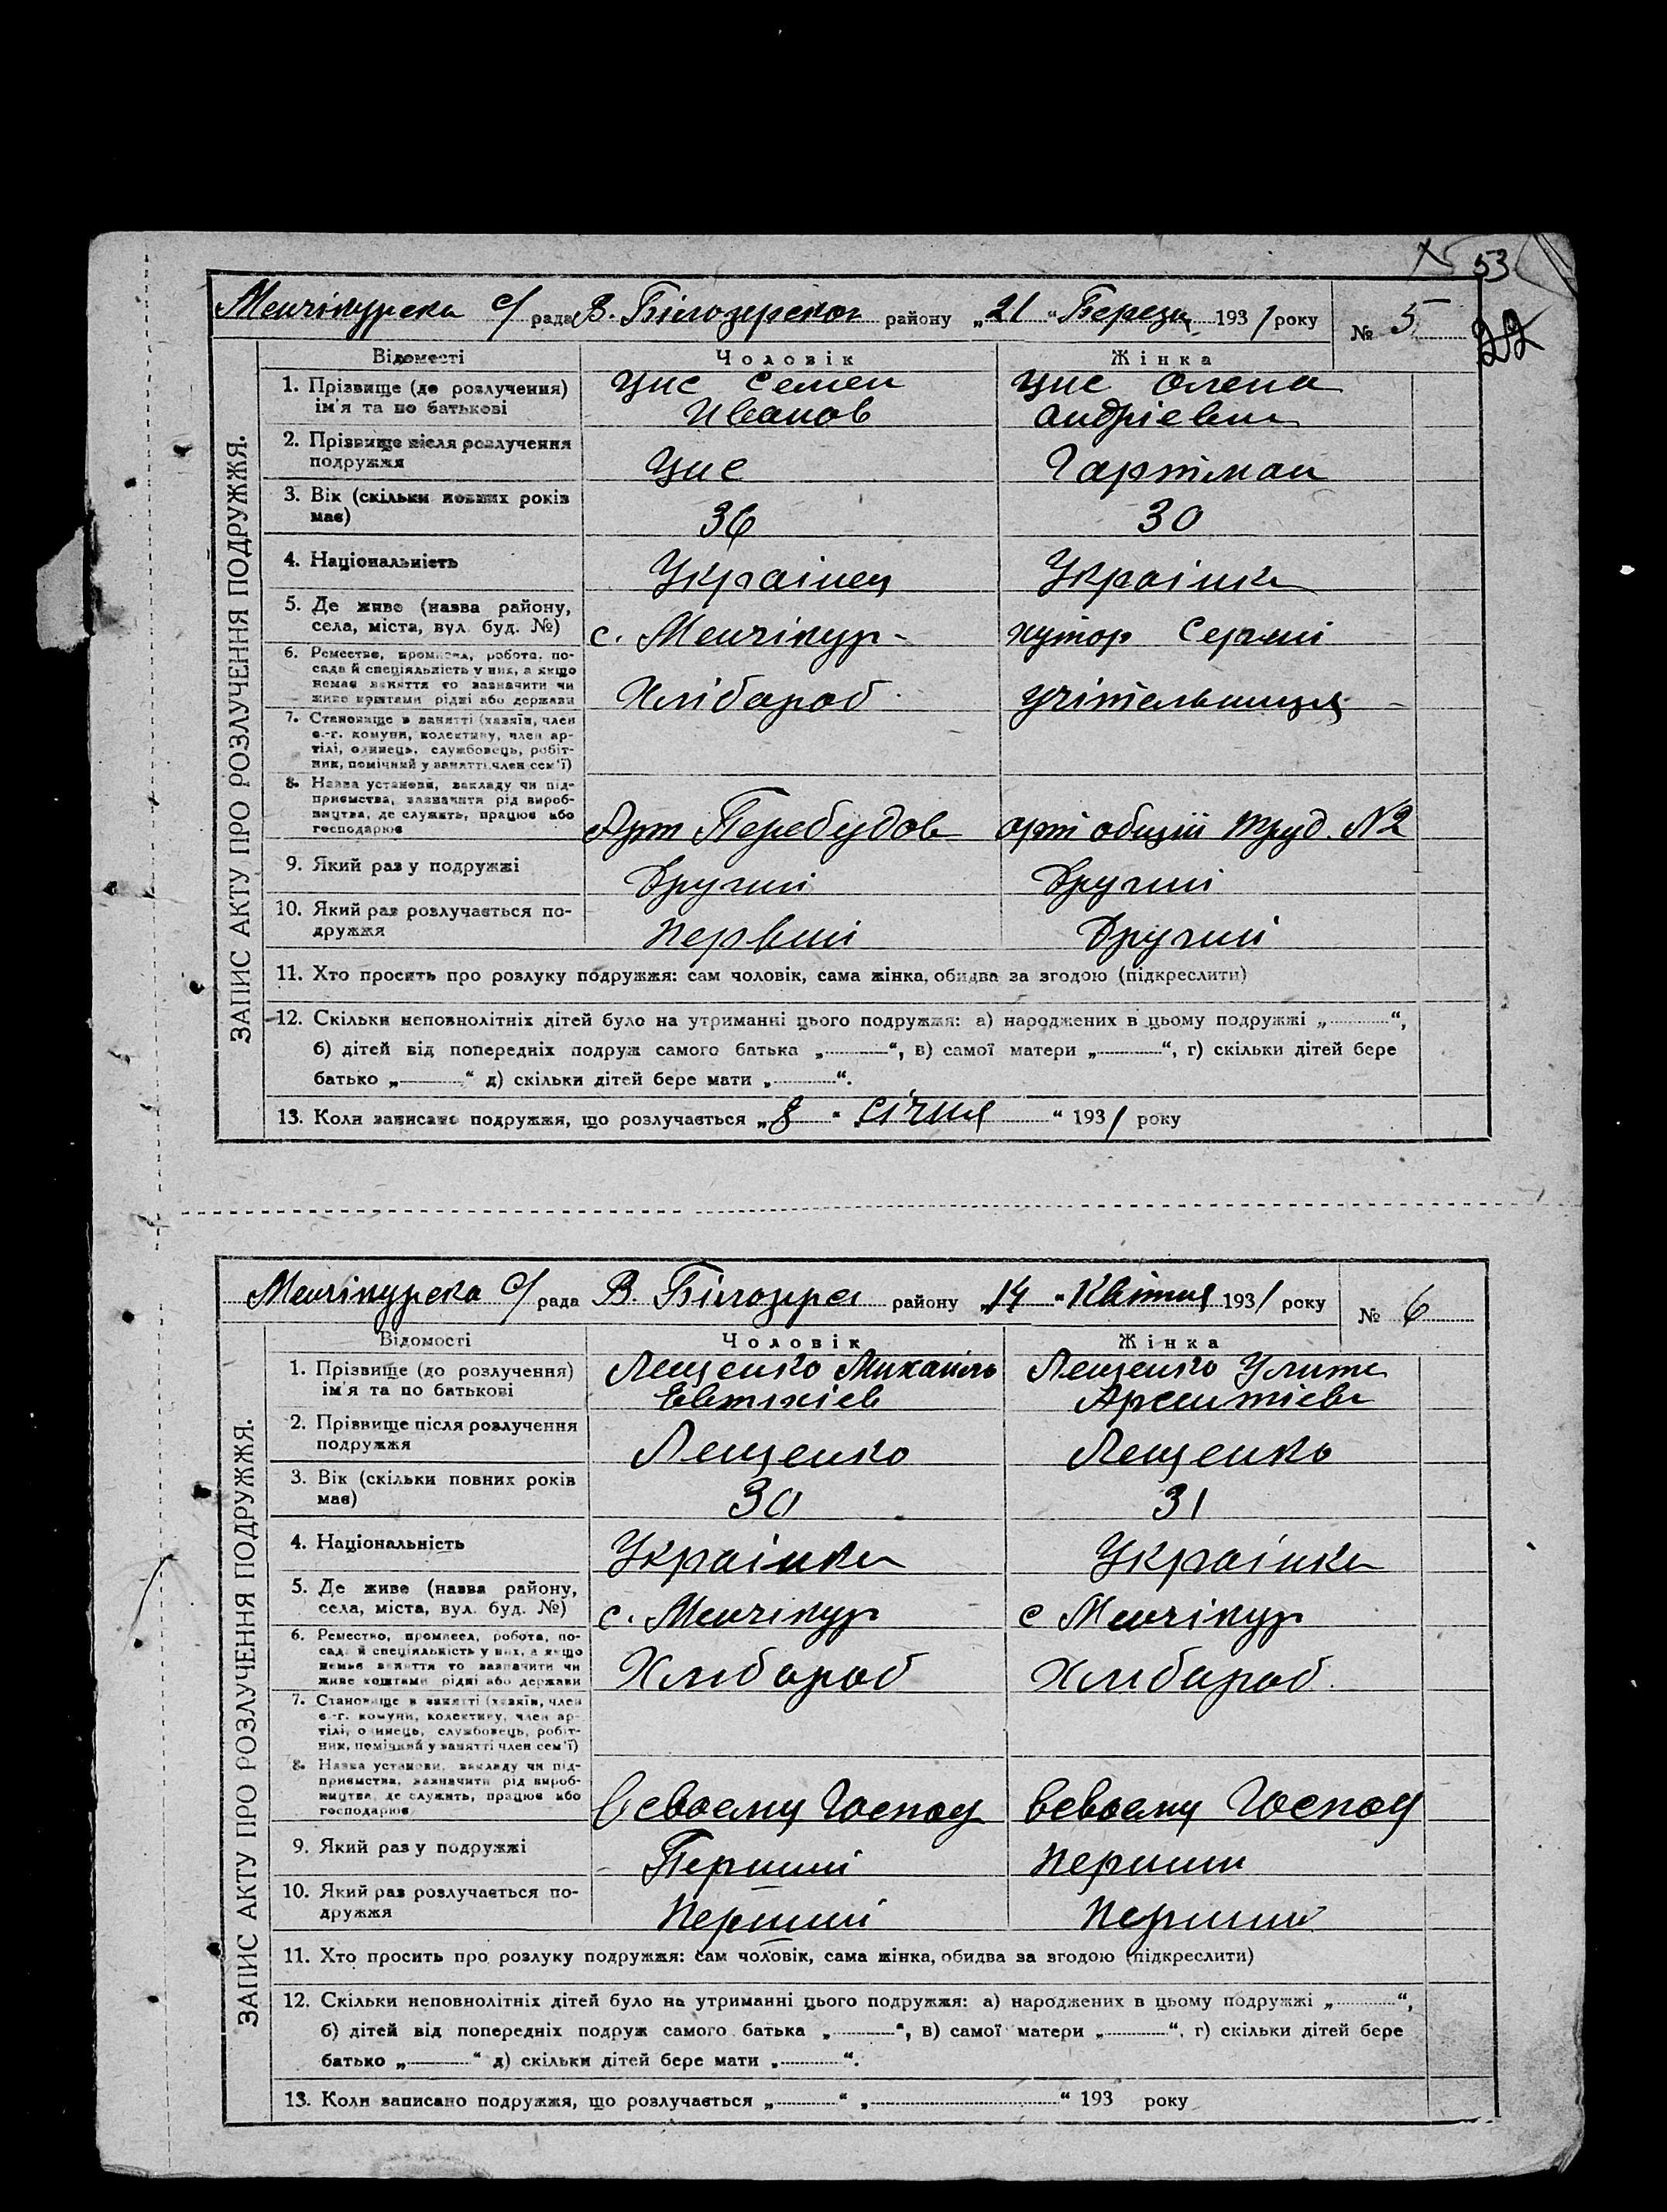 53
22
Менчікурска с/ рада В. Білозерског району „21“ Березн 1931 року № 5
ЗАПИС АКТУ ПРО РОЗЛУЧЕННЯ ПОДРУЖЖЯ.
Відомості Чоловік Жінка
1. Прізвище (до розлучення) Цис Семен Цис Олена
ім'я та по батькові Иванов Андріевна
2. Прізвище після розлучення
подружжя Цис Гартман
3. Вік (скільки повних років
має) 36 30
4. Національність Украінец Украінка
5. Де живе (назва району,
села, міста, вул. буд. №) с. Менчікур- хутор Сергии
6. Ремество, промисел, робота, по-
сада й спеціяльність у них, а якщо
немає заняття то зазначити чи
живе коштами рідні або держави Хлібароб учітельниця
7. Становище в занятті (хазяїн, член
с.-г. комуни, колективу, член ар-
тілі, одинець, службовець, робіт-
ник, помічний у занятті член сем'ї)
8. Назва установи, закладу чи під-
приємства, зазначити рід вироб-
ництва, де служить, працює або
господарює Арт Перебудов арт общій труд. №2
9. Який раз у подружжі Другий Другий
10. Який раз розлучається по-
дружжя Первий Другий
11. Хто просить про розлуку подружжя: сам чоловік, сама жінка, обидва за згодою (підкреслити)
12. Скільки неповнолітніх дітей було на утриманні цього подружжя: а) народжених в цьому подружжі „ “,
б) дітей від попередніх подруж самого батька „ “, в) самої матери „ “, г) скільки дітей бере
батько „ “ д) скільки дітей бере мати „ “.
13. Коли записано подружжя, що розлучається „8“ „січня“ 1931 року
Менчікурска с/ рада В. Білозерс району „14“ Квітня 1931 року № 6
ЗАПИС АКТУ ПРО РОЗЛУЧЕННЯ ПОДРУЖЖЯ.
Відомості Чоловік Жінка
1. Прізвище (до розлучення) Лещенко Михаиль Лещенко Улита
ім'я та по батькові Евтихіев
2. Прізвище після розлучення
подружжя Лещенко Лещенко
3. Вік (скільки повних років
має) 30 31
4. Національність Украінка Украінка
5. Де живе (назва району,
села, міста, вул. буд. №) с. Менчікур с Менчікур
6. Ремество, промисел, робота, по-
сада й спеціяльність у них, а якщо
немає заняття то зазначити чи
живе коштами рідні або держави Хлібароб Хлібароб.
7. Становище в занятті (хазяїн, член
с.-г. комуни, колективу, член ар-
тілі, одинець, службовець, робіт-
ник, помічний у занятті член сем'ї)
8. Назва установи, закладу чи під-
приємства, зазначити рід вироб-
ництва, де служить, працює або
господарює всвоему Господ всвоему Господ
9. Який раз у подружжі Перший перший
10. Який раз розлучається по-
дружжя перший перший
11. Хто просить про розлуку подружжя: сам чоловік, сама жінка, обидва за згодою (підкреслити)
12. Скільки неповнолітніх дітей було на утриманні цього подружжя: а) народжених в цьому подружжі „ “,
б) дітей від попередніх подруж самого батька „ “, в) самої матери „ “, г) скільки дітей бере
батько „ “ д) скільки дітей бере мати „ “.
13. Коли записано подружжя, що розлучається „ “ „ “ 193 року